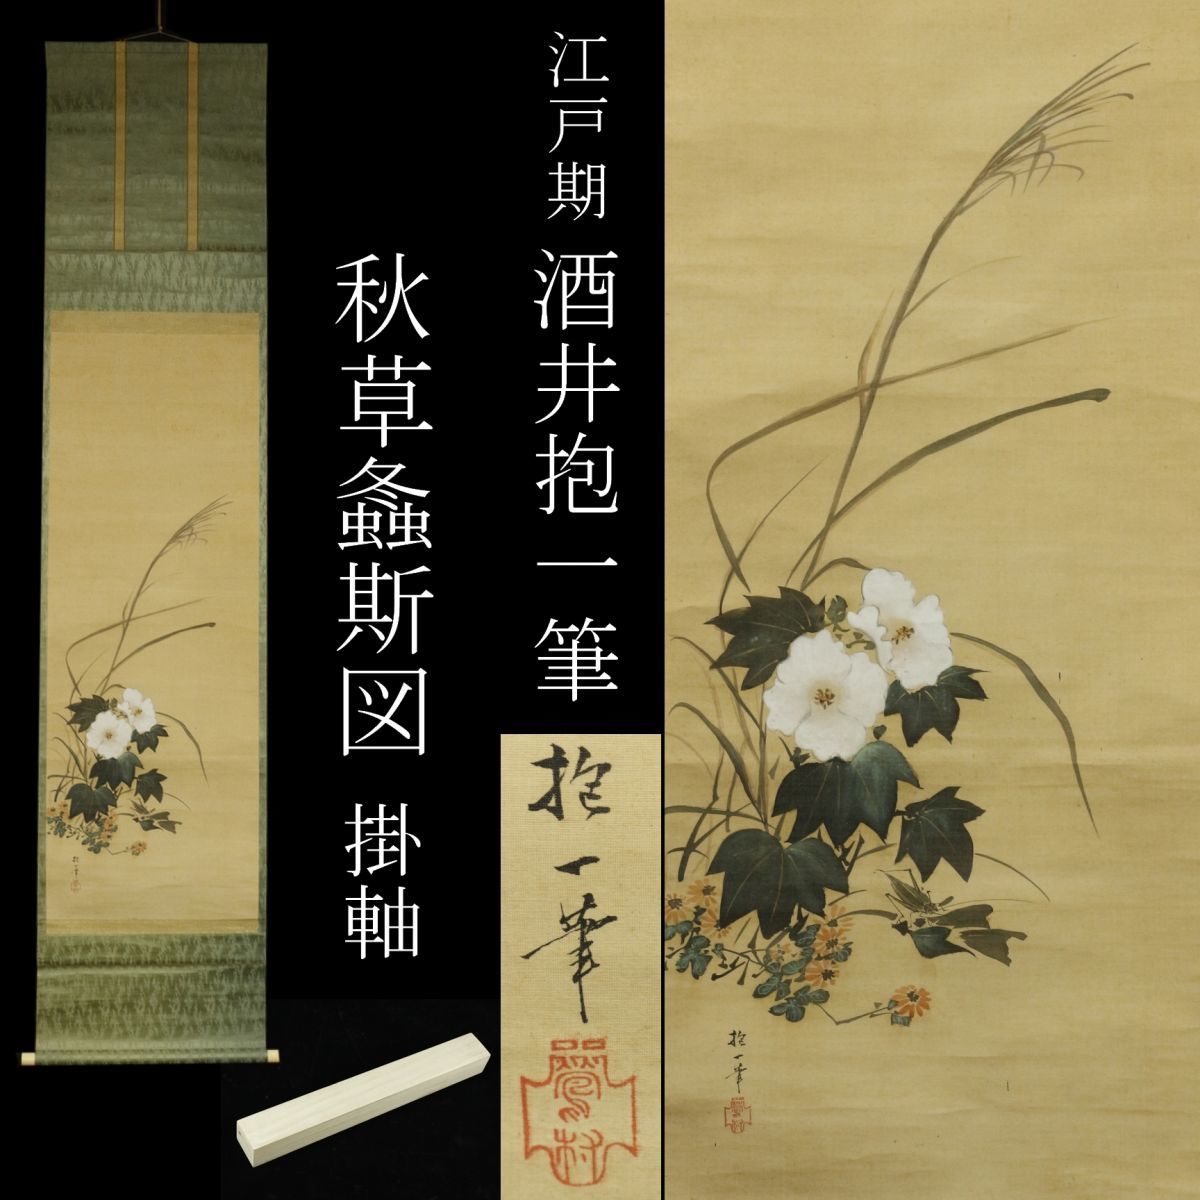 江戸期 酒井抱一筆
秋草螽斯図 掛軸
抱一筆
抱一筆